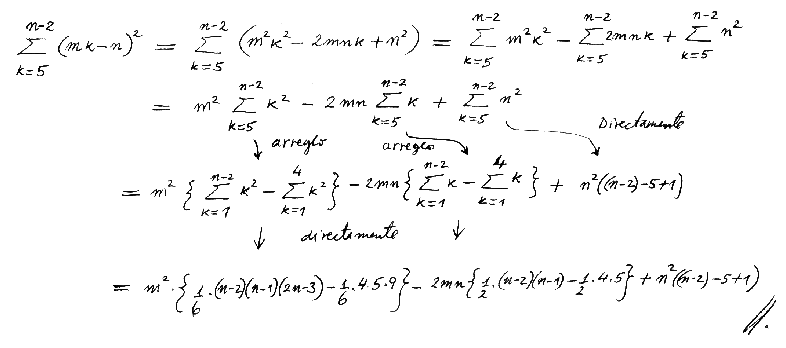 $\sum_{k=5}^{n-2} (mk-n)^2 = \sum_{k=5}^{n-2} (m^2k^2 - 2mnk + n^2) = \sum_{k=5}^{n-2} m^2k^2 - \sum_{k=5}^{n-2} 2mnk + \sum_{k=5}^{n-2} n^2$
$= m^2 \sum_{k=5}^{n-2} k^2 - 2mn \sum_{k=5}^{n-2} k + \sum_{k=5}^{n-2} n^2$
↓ arreglo arreglo ↘ Directamente ↘
$= m^2 \{ \sum_{k=1}^{n-2} k^2 - \sum_{k=1}^{4} k^2 \} - 2mn \{ \sum_{k=1}^{n-2} k - \sum_{k=1}^{4} k \} + n^2((n-2)-5+1)$
↓ directamente ↓
$= m^2 \cdot \{ \frac{1}{6} \cdot (n-2)(n-1)(2n-3) - \frac{1}{6} \cdot 4 \cdot 5 \cdot 9 \} - 2mn \{ \frac{1}{2} \cdot (n-2)(n-1) - \frac{1}{2} \cdot 4 \cdot 5 \} + n^2((n-2)-5+1)$
//.